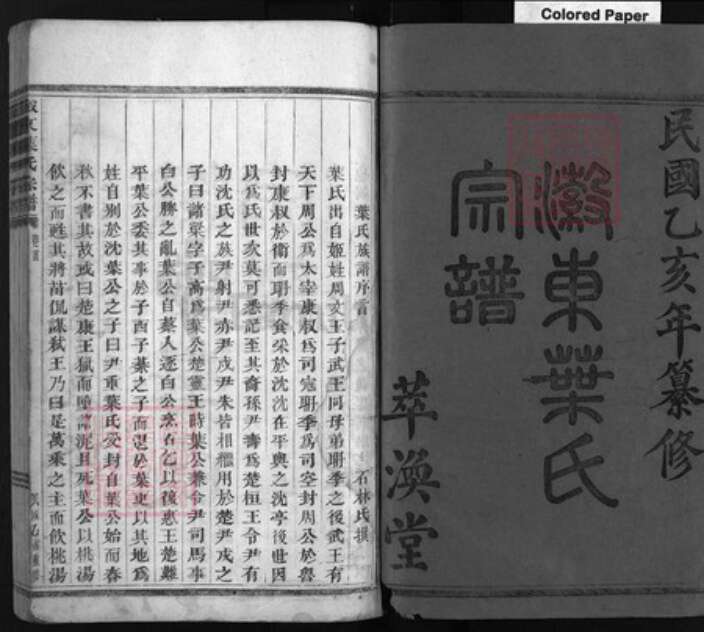 Colored Paper
民國乙亥年纂修
徽東葉氏
宗譜
萃渙堂
葉氏族譜序言
石林氏撰
葉氏出自姬姓周文王子武王同母弟聃季之後武王有
天下周公爲太宰康叔爲司寇聃季爲司空封周公於魯
封康叔於衛而聃季食采於沈沈在平輿之沈亭後世因
以爲氏世次莫可悉記至其裔孫尹壽爲楚桓王令尹有
功沈氏之族尹射尹赤尹戍尹朱皆相繼用於楚尹戍之
子曰諸梁字子高爲葉公楚靈王時葉公兼令尹司馬事
白公勝之亂葉公自蔡人逐白公烹石乞以復惠王楚難
平葉公委其事於子西子綦之子而退於葉更以其地爲
姓自別於沈葉公之子曰尹重葉氏受封自葉公始而春
秋不書其故或曰楚康王獄而墮泥且死葉公以桃湯
飲之而甦其將苗侃謀弒王乃曰是萬乘之主而飲桃湯